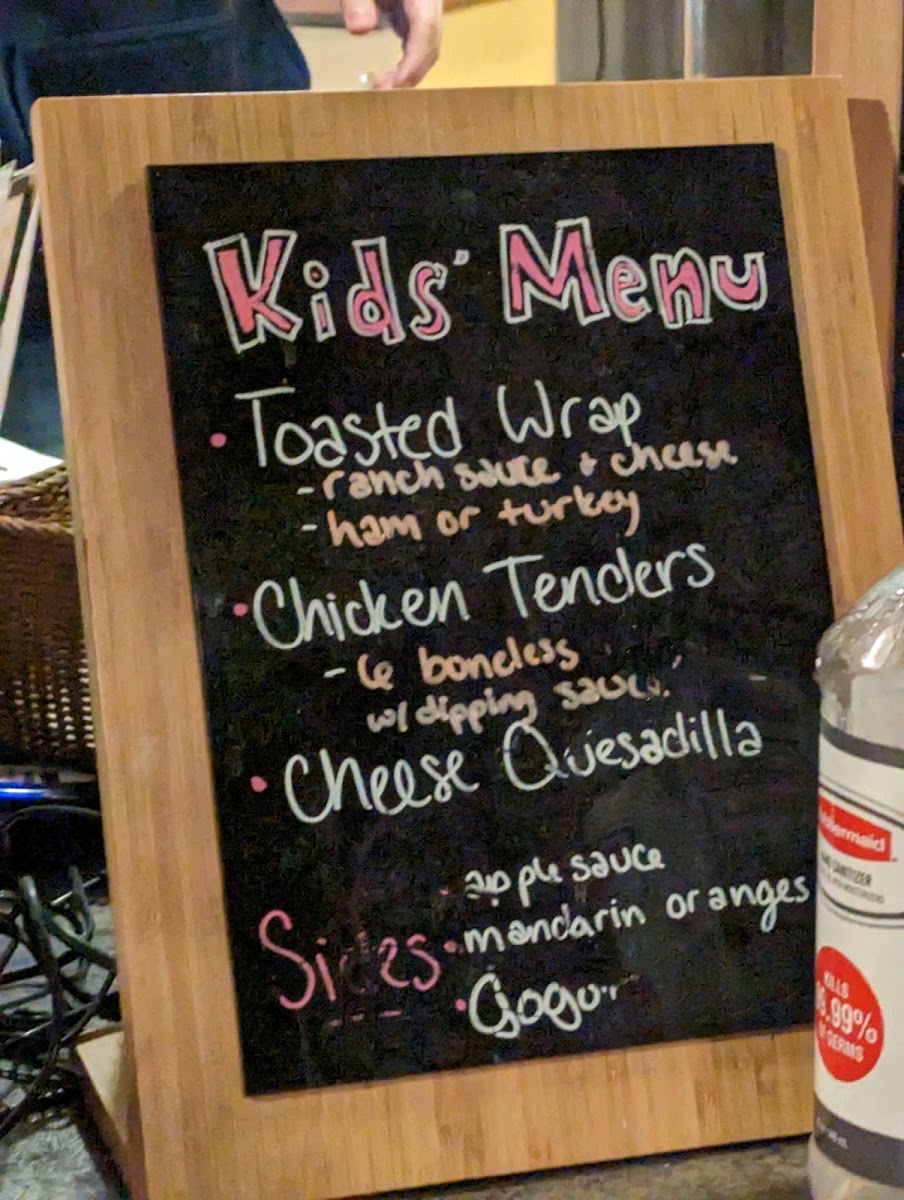 Kids' Menu
• Toasted Wrap
- ranch sauce + cheese
- ham or turkey
• Chicken Tenders
- 6 boneless
w/ dipping sauce!
• Cheese Quesadilla
Sides
• apple sauce
• mandarin oranges
• Gogu
KILLS
99.99%
OF GERMS